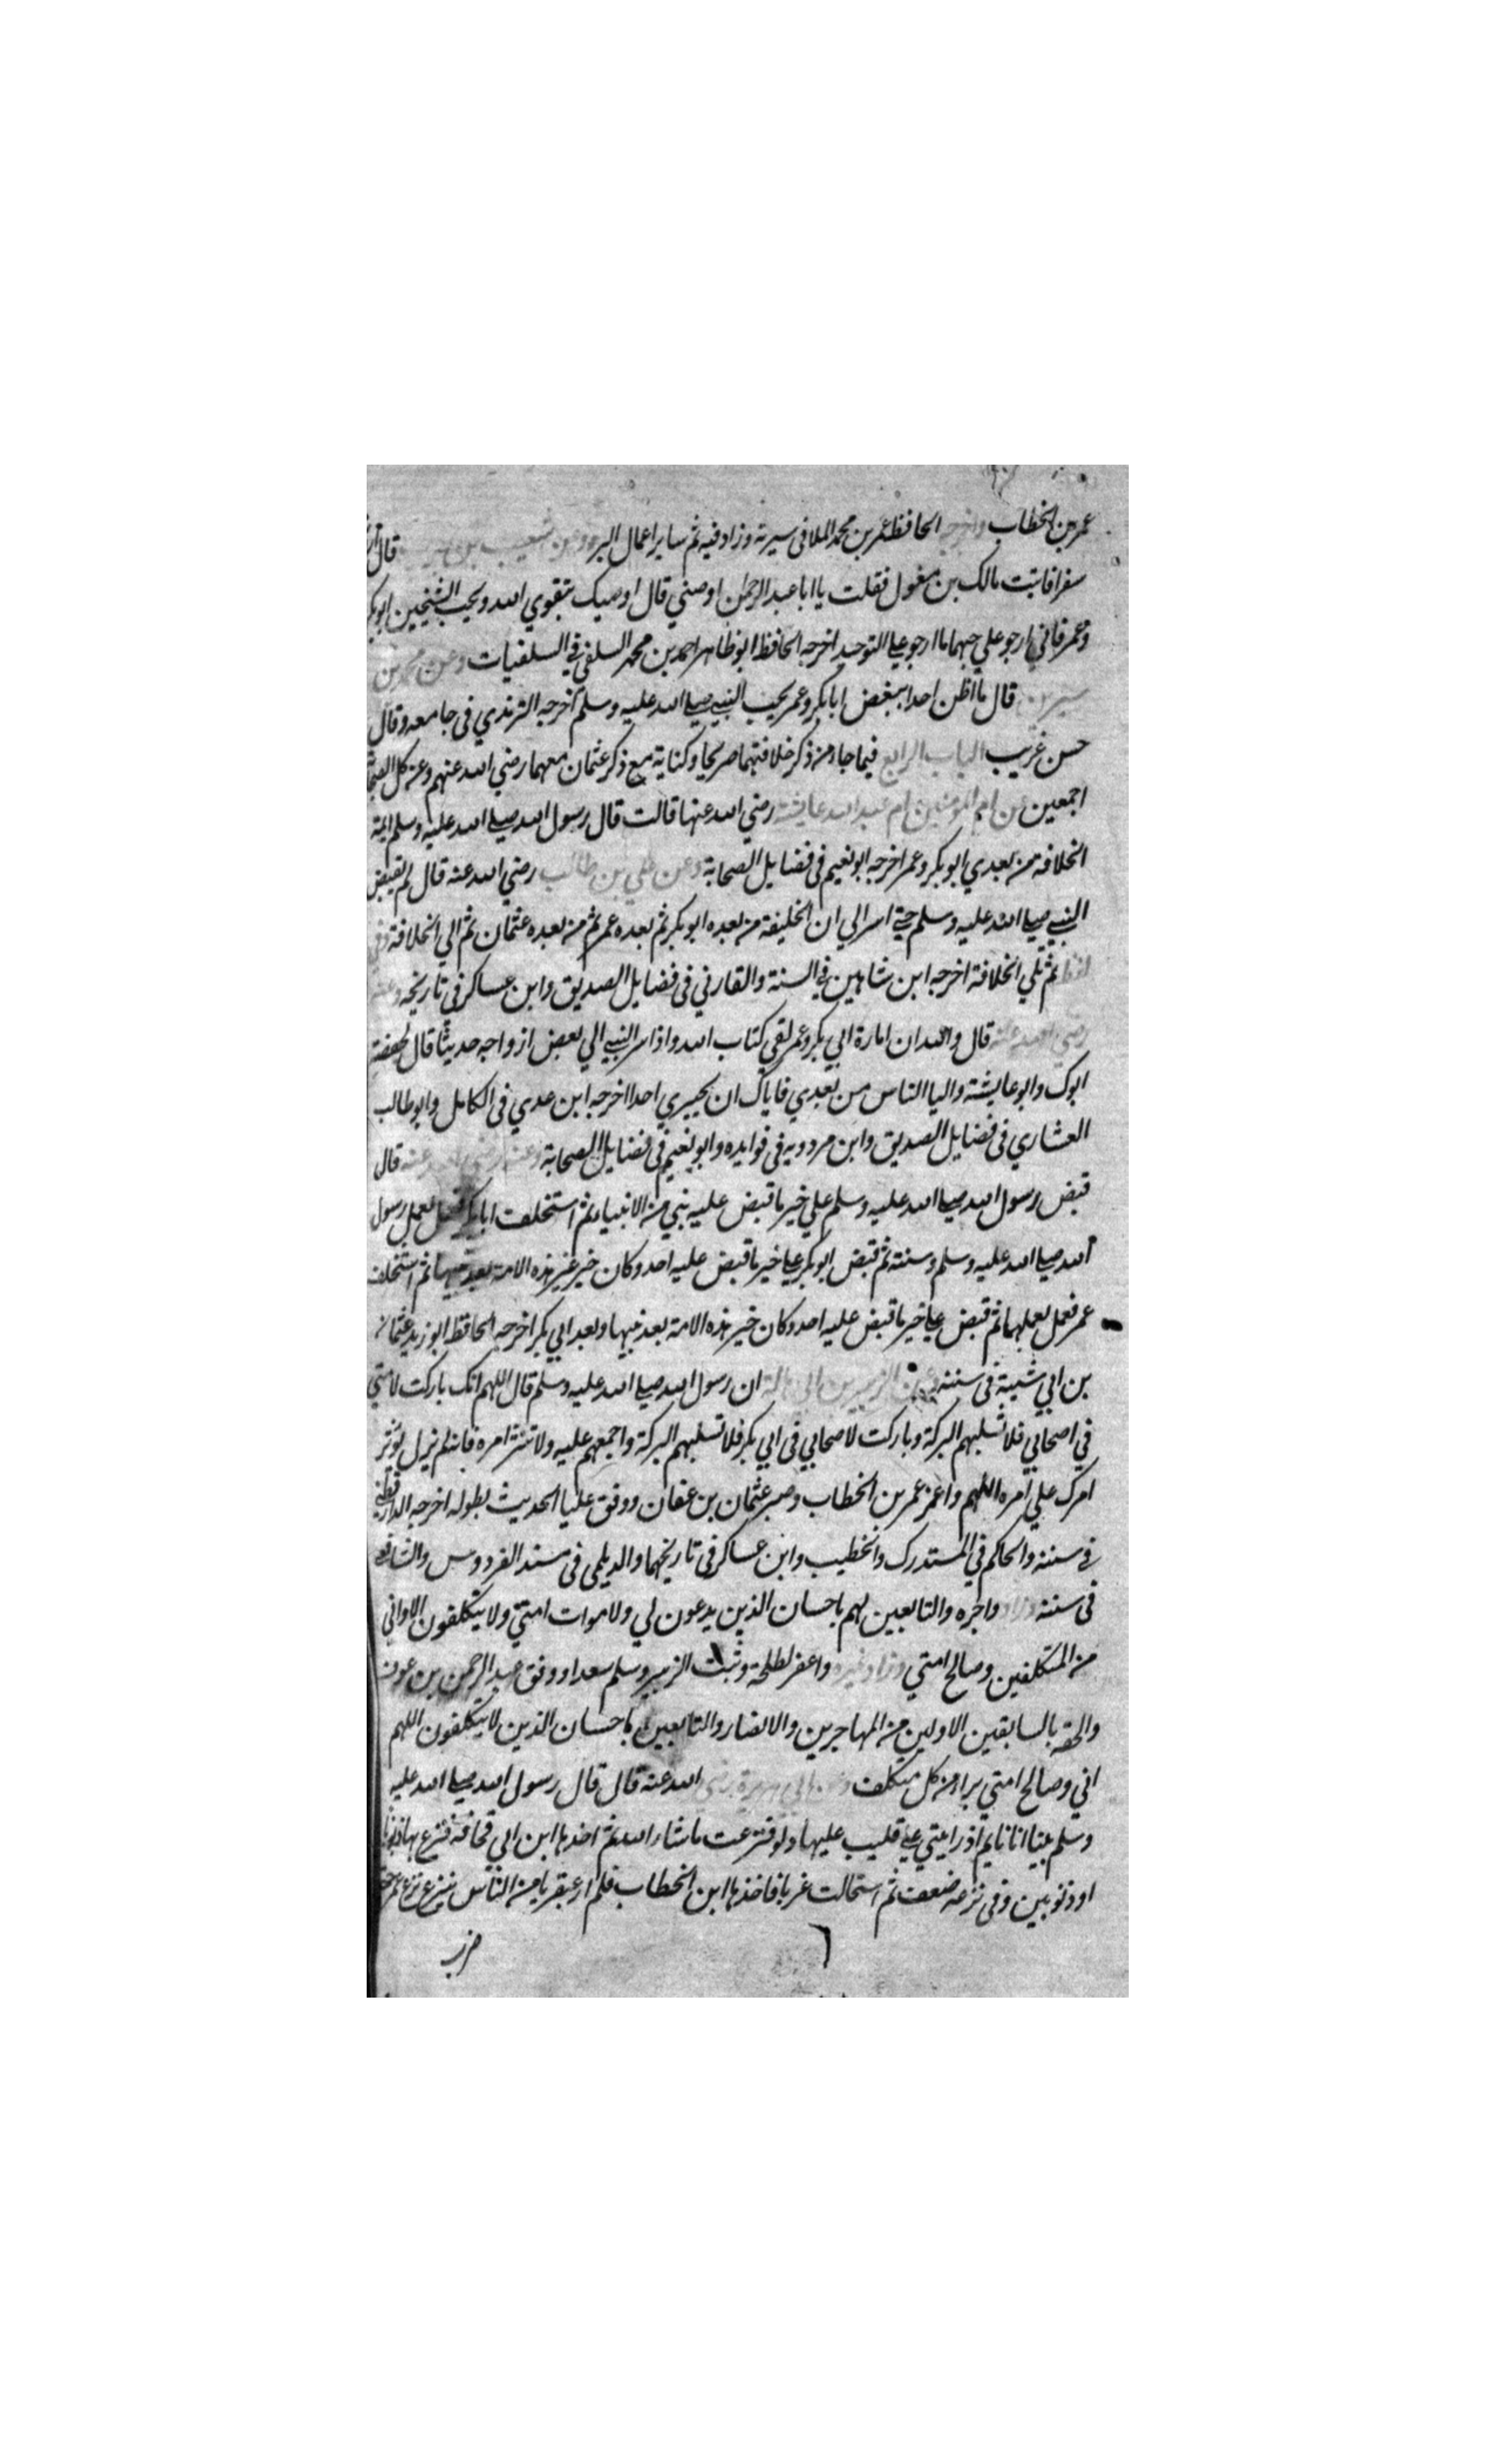 عمر بن الخطاب واخرجه الحافظ عمر بن محمد الملا في سيرته وزاد فيه ثم ساير اعمال البر وعن شعيب بن قال
سفرا فاتيت مالك بن مغول فقلت يا ابا عبد الرحمن اوصني قال اوصيك بتقوي الله وبحب الشيخين ابو بكر
وعمر فاني ارجو علي حبهما ما ارجو علي التوحيد اخرجه الحافظ ابو طاهر احمد بن محمد السلفي في السلفيات وعن محمد بن
سيرين قال ما اظن احدا يبغض ابا بكر وعمر يحب النبي صلي الله عليه وسلم اخرجه الترمذي في جامعه وقال
حسن غريب الباب الرابع فيما جاء من ذكر خلافتهما صريحا وكناية مع ذكر عثمان معهما رضي الله عنهم وعن كل الصحابة
اجمعين عن ام المومنين ام عبد الله عايشة رضي الله عنها قالت قال رسول الله صلي الله عليه وسلم ايمة
الخلافة من بعدي ابو بكر وعمر اخرجه ابو نعيم في فضايل الصحابة وعن علي بن طالب رضي الله عنه قال لم يقبض
النبي صلي الله عليه وسلم حتي اسر الي ان الخليفة من بعده ابو بكر ثم بعده عمر ثم من بعده عثمان ثم الي الخلافة وفي
لفظ ثم تلي الخلافة اخرجه ابن شاهين في السنة والقارني في فضايل الصديق وابن عساكر في تاريخه وعنه
رضي الله عنه قال والله ان امارة ابي بكر وعمر لفي كتاب الله واذ اسر النبي الي بعض ازواجه حديثا قال لحفصة
ابوك وابو عايشة واليا الناس من بعدي فاياك ان تخبري احدا اخرجه ابن عدي في الكامل وابو طالب
العشاري في فضايل الصديق وابن مردويه في فوايده وابو نعيم في فضايل الصحابة وعنه رضي الله عنه قال
قبض رسول الله صلي الله عليه وسلم علي خير ما قبض عليه نبي من الانبياء ثم استخلف ابا بكر فعمل بعمل رسول
الله صلي الله عليه وسلم وسنته ثم قبض ابو بكر علي خير ما قبض عليه احد وكان خير هذه الامة بعد نبيها ثم استخلف
عمر فعمل بعملهما ثم قبض علي خير ما قبض عليه احد وكان خير هذه الامة بعد نبيها وبعد ابي بكر اخرجه الحافظ ابو زيد عثمان
بن ابي شيبة في سننه وعن الزبير بن ابي هالة ان رسول الله صلي الله عليه وسلم قال اللهم انك باركت لامتي
في اصحابي فلا تسلبهم البركة وباركت لاصحابي في ابي بكر فلا تسلبهم البركة واجمعهم عليه ولا تنثر امره فانه لم يزل يوثر
امرك علي امره اللهم واعز عمر بن الخطاب وصبر عثمان بن عفان ووفق عليا الحديث بطوله اخرجه الدارقطني
في سننه والحاكم في المستدرك والخطيب وابن عساكر في تاريخهما والديلمي في مسند الفردوس والشافعي
في سننه وزاد واجره والتابعين لهم باحسان الذين يدعون لي ولاموات امتي ولا يتكلفون الا واني
من المتكلفين وصالح امتي وزاد غيره واغفر لطلحة وثبت الزبير وسلم سعدا ووفق عبد الرحمن بن عوف
والحقه بالسابقين الاولين من المهاجرين والانصار والتابعين باحسان الذين لا يتكلفون اللهم
اني وصالح امتي براء من كل متكلف وعن ابي هريرة رضي الله عنه قال قال رسول الله صلي الله عليه
وسلم بينا انا نايم اذ رايتني علي قليب عليها دلو فنزعت ما شاء الله ثم اخذها ابن ابي قحافة فنزع بها ذنوبا
او ذنوبين وفي نزعه ضعف ثم استحالت غربا فاخذها ابن الخطاب فلم ار عبقريا من الناس ينزع نزع عمر حتي
ضرب
٦